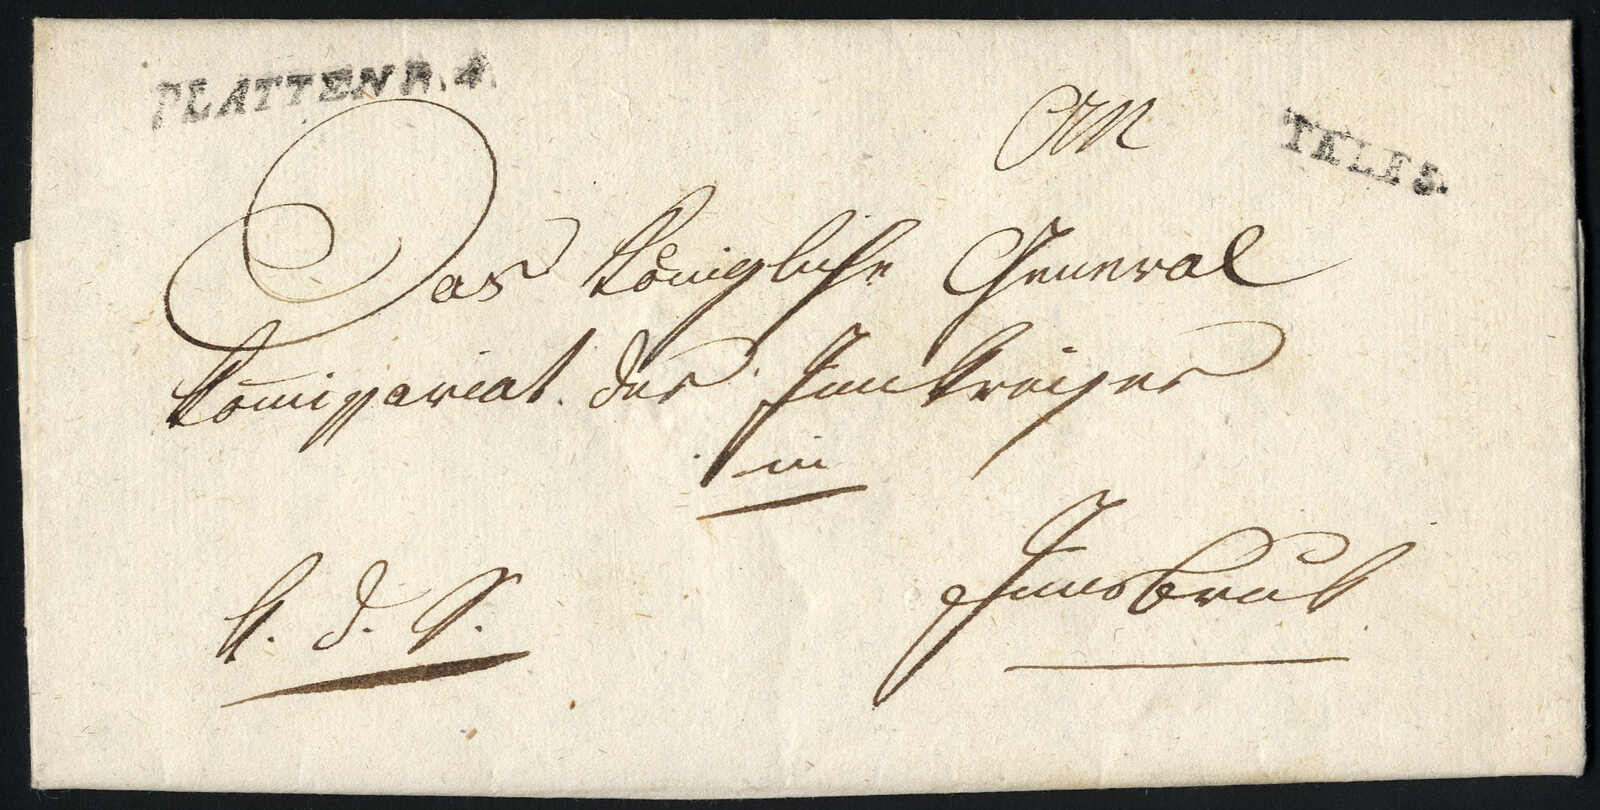 PLATTEN R.4.
TELFS.
An
Das Königliche General
Kom̄issariat des Innkreises
in
Innsbruk
K. d. S.